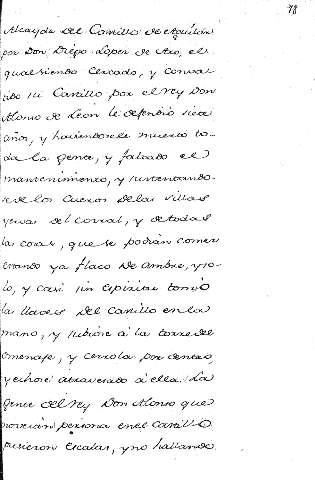 78
Alcayde del Castillo de Aguilar
por Don Diego Lopez de Aro, el
qual siendo Cercado, y convat
ido su Castillo por el rey Don
Alonso de Leon le defendio siete
años, y haviendosele muerto to-
da la gente, y faltado el
mantenimiento, y sustentando-
se de los Cueros de las sillas
yervas del corral, y de todas
las cosas, que se podian comer
estando ya flaco de ambre, y so-
lo, y casi sin espiritu tomó
las llaves del Castillo en la
mano, y subiose á la torre del
omenaje, y cerrola por dentro
y echose atravesado á ella. La
gente del rey Don Alonso que
no veian persona en el Castillo
pusieron escalas, y no hallando